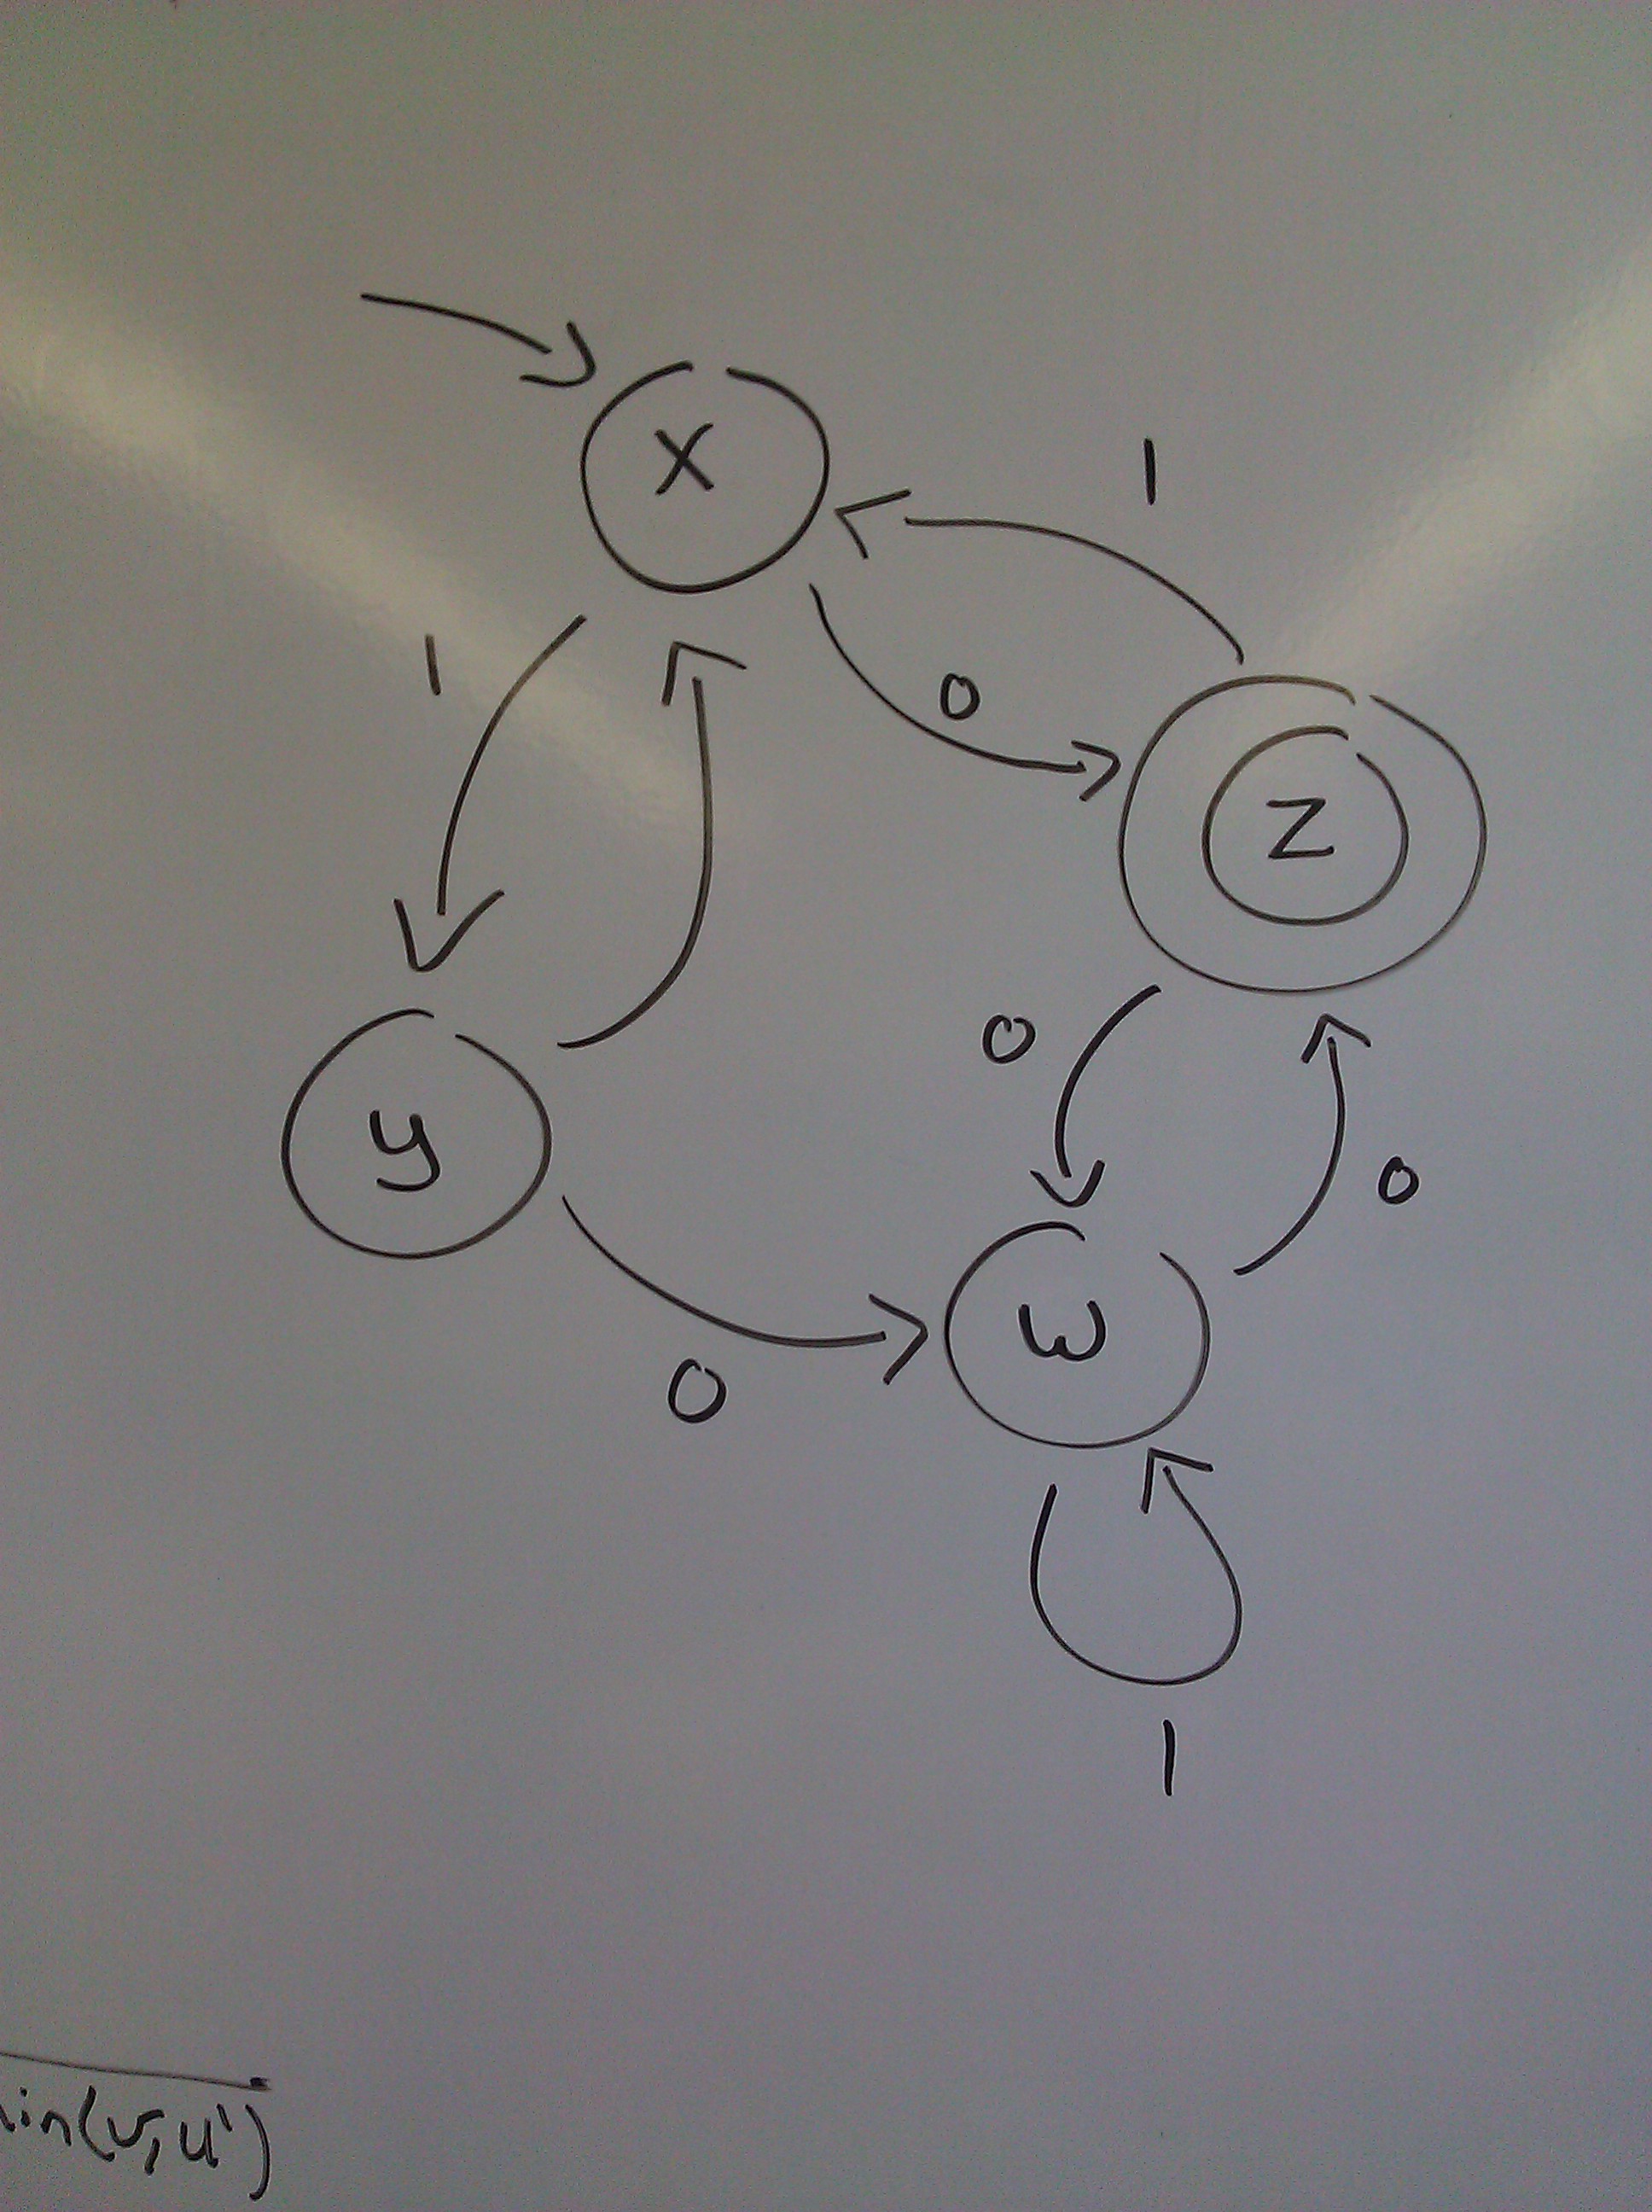 X
1
1
0
Z
0
y
0
0
w
1
in(v, u')